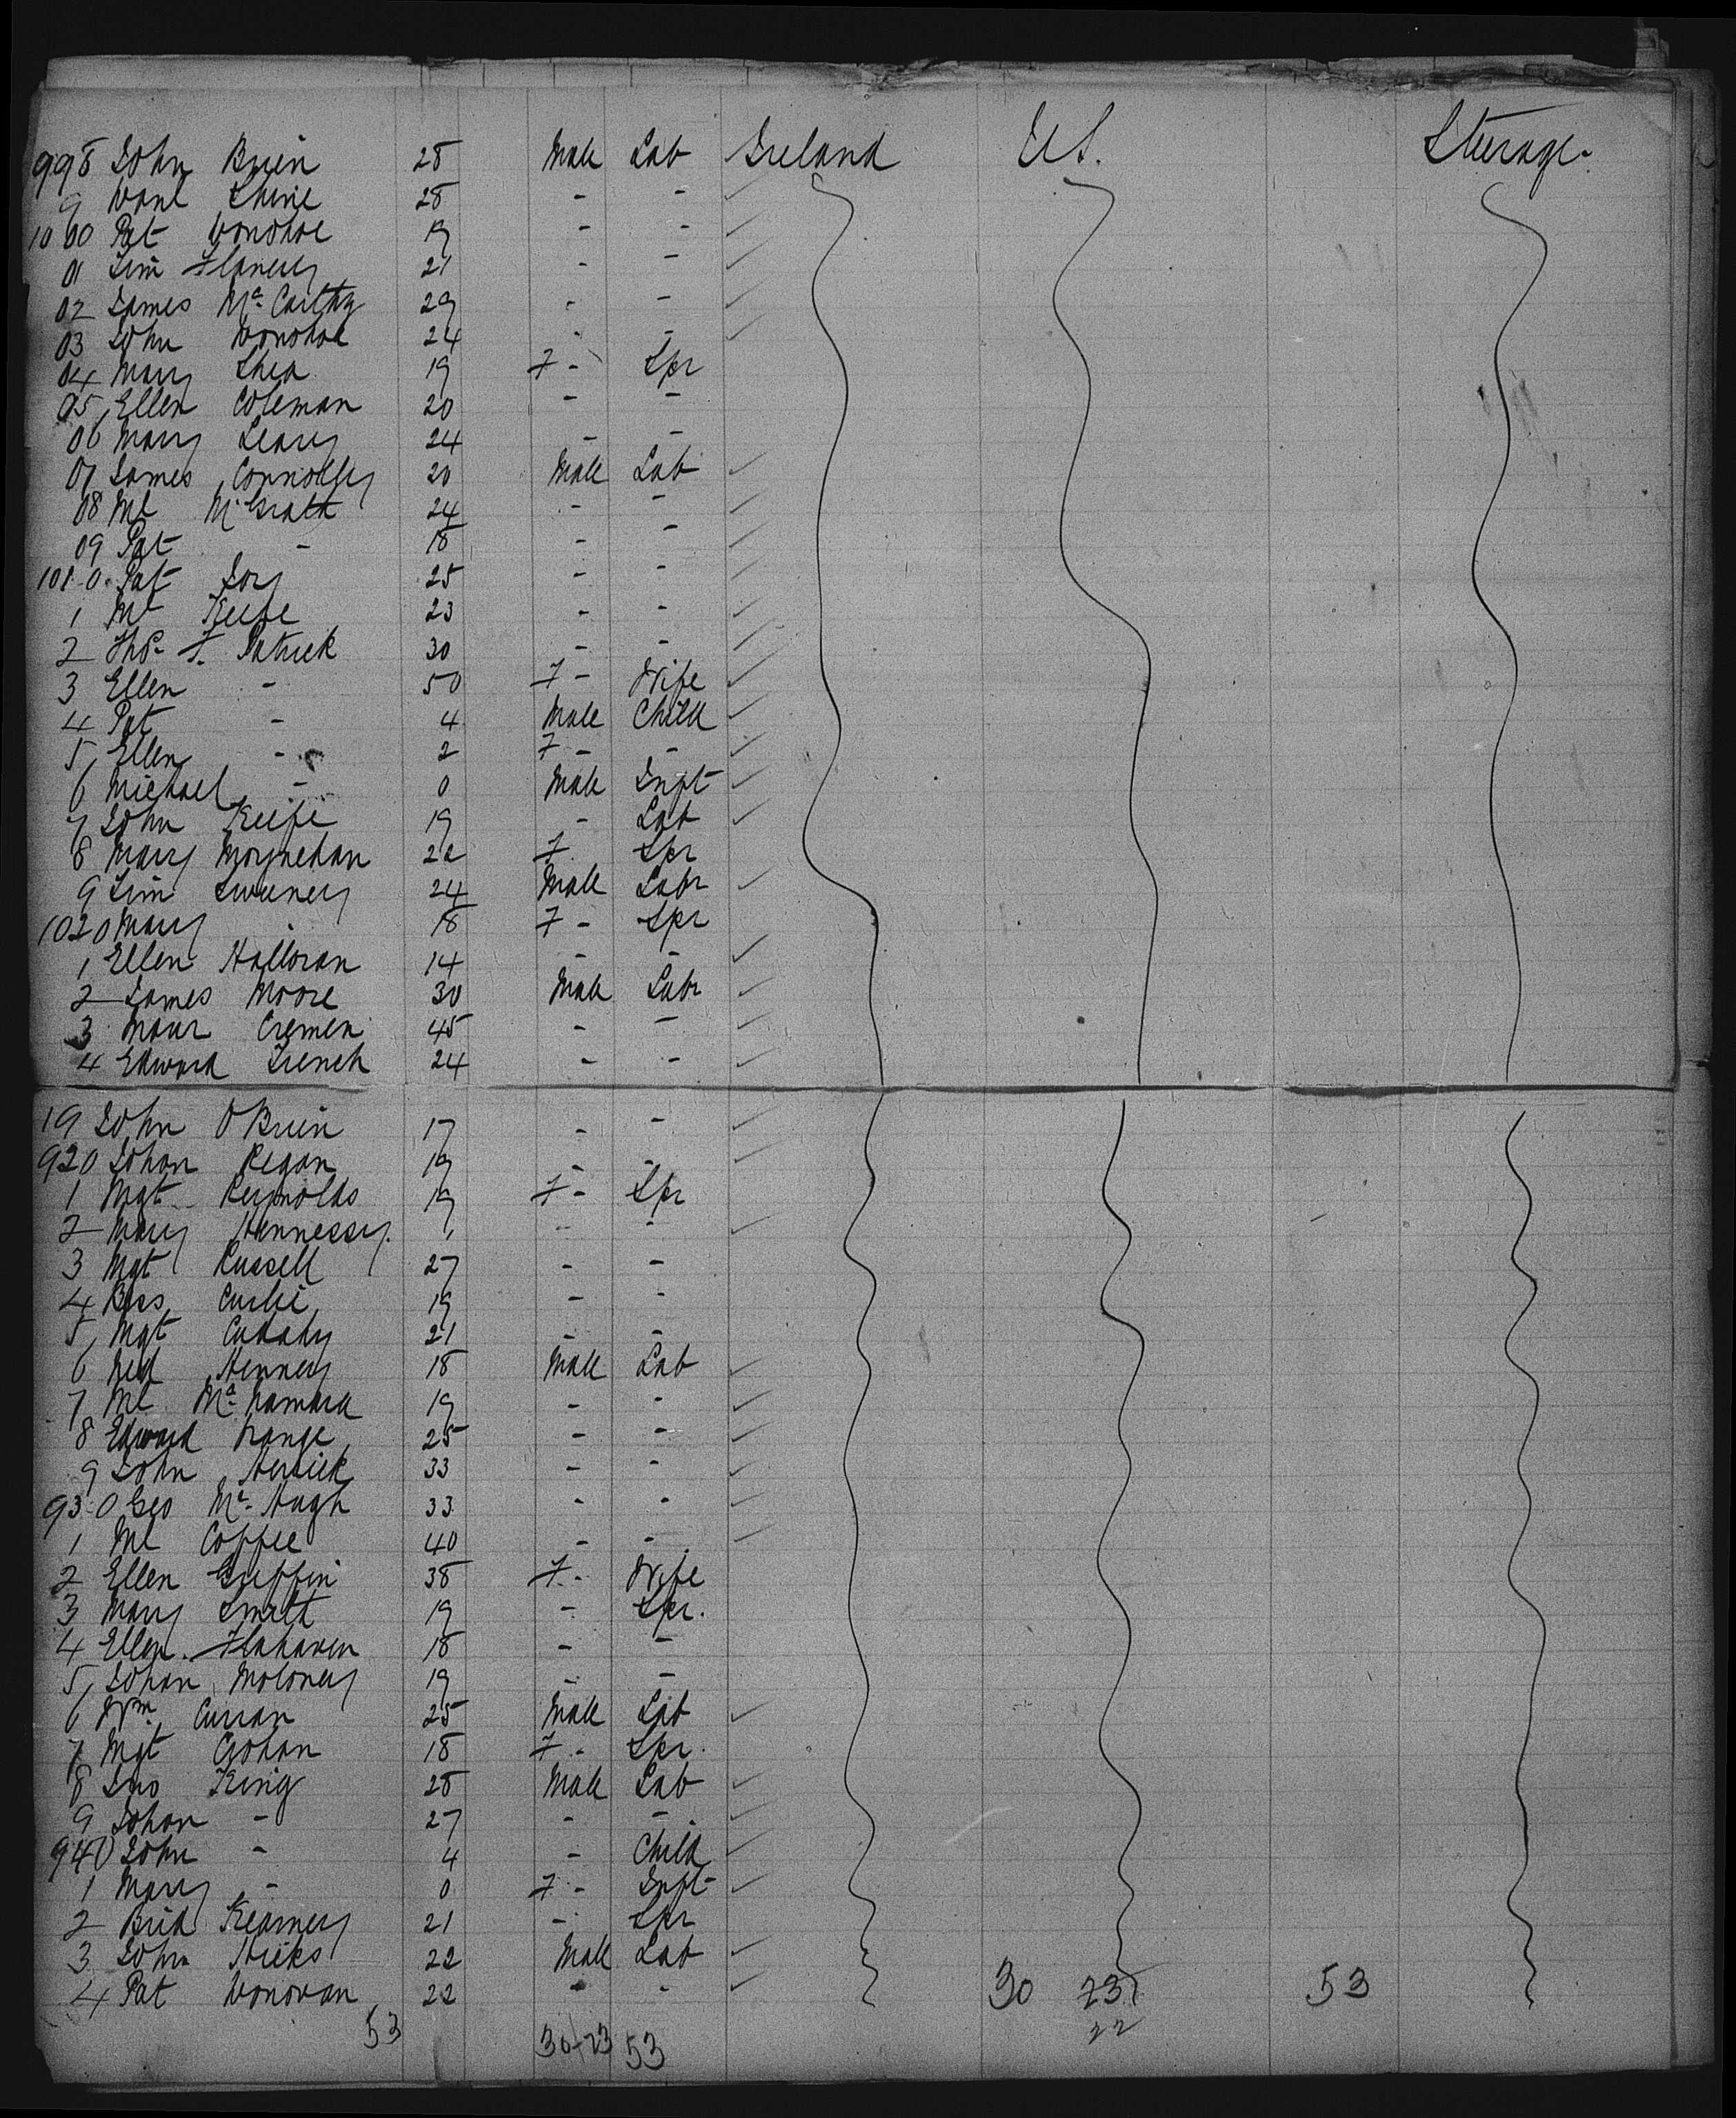 998 John Brien 28 Male Lab Ireland U.S. Steerage.
9 Danl Shine 28 - -
1000 Pat Donohoe 19 - -
01 Tim Flanery 21 - -
02 James Mc Carthy 29 - -
03 John Donohoe 24 - -
04 Mary Shea 19 F - Spr
05 Ellen Coleman 20 - -
06 Mary Leary 24 - -
07 James Connolly 20 Male Lab
08 Ml McGrath 24 - -
09 Pat - 18 - -
1010 Pat Joy 25 - -
1 Ml Keefe 23 - -
2 Thos F. Patrick 30 - -
3 Ellen - 50 F - Wife
4 Pat - 4 Male Child
5 Ellen - 2 F - -
6 Michael - 0 Male Inft
7 John Keefe 19 - Lab
8 Mary Moynehan 22 F Spr
9 Tim Sweeney 24 Male Labr
1020 Mary - 18 F - Spr
1 Ellen Halloran 14 - -
2 James Moore 30 Male Labr
3 Maur Cremen 45 - -
4 Edward French 24 - -
19 John O Brien 17 - -
920 Johan Regan 19 - -
1 Mgt Reynolds 19 F - Spr
2 Mary Hennessy. - -
3 Mgt Russell 27 - -
4 Bess 19 - -
5 Mgt Cuddhy 21 - -
6 Ned Henney 18 Male Lab
7 Ml Mc Namara 19 - -
8 Edward Prange 25 - -
9 John 33 - -
930 Geo Mc Hugh 33 - -
1 Ml Coffee 40 - -
2 Ellen Griffin 38 F - Wife
3 Mary Smith 19 - Spr.
4 Ellen Flahaven 18 - -
5 Johan Moloney 19 - -
6 Wm Curran 25 Male Lab
7 Mgt 18 F - Spr.
8 Jno King 28 Male Lab
9 Johan - 27 - -
940 John - 4 - Child
1 Mary - 0 F - Inft
2 Brid Kearney 21 - Spr
3 John Hicks 22 Male Lab
4 Pat Donovan 22 - - 30 23 53
53 30-23 53 22